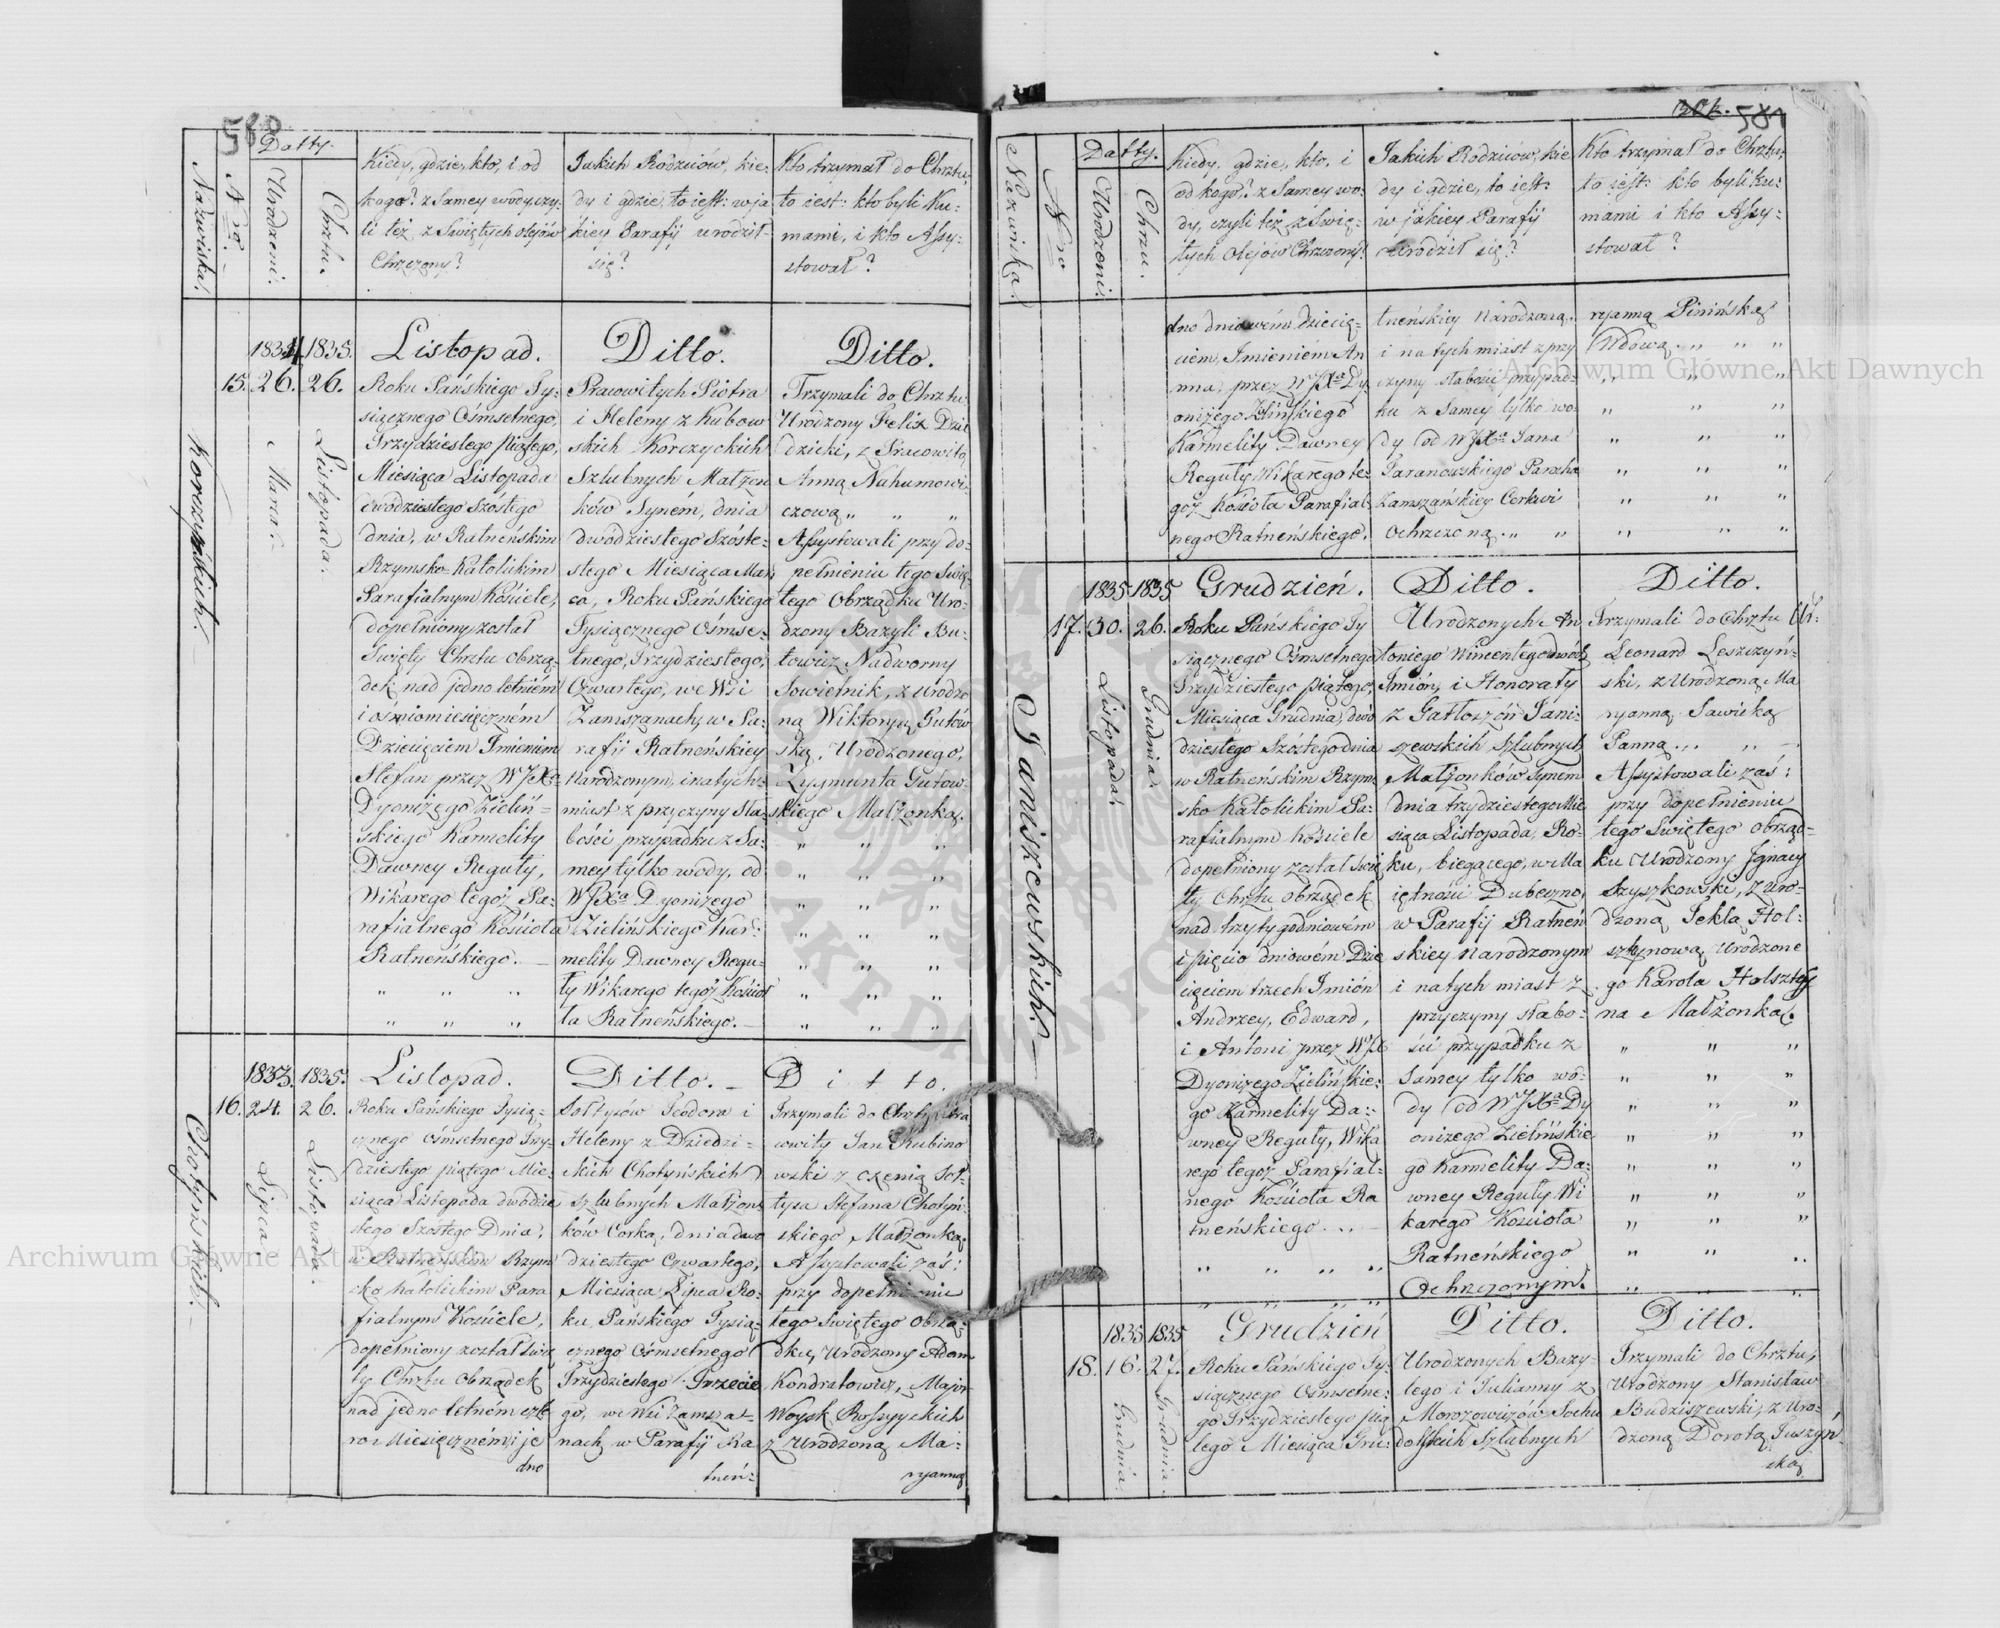 580
Datty.
Nazwiska.
Nro
Urodzeni.
Chrztu.
Kiedy, gdzie, kto, i od
kogo? z Samey wody czy-
li też z Swiętych olejów
Chrzczony?
Jakich Rodziców, kie-
dy i gdzie, to iest: w ja
kiey Parafij urodził
się?
Kto trzymał do Chrztu,
to iest: kto byli Ku-
mami, i kto Assy-
stował?
Korczyckich.
15.
1834.
26.
Marca.
1835.
26.
Listopada.
Listopad.
Roku Pańskiego Ty-
siącznego Ośmsetnego,
Trzydziestego Piątego,
Miesiąca Listopada
dwódziestego Szóstego
dnia, w Ratneńskim
Rzymsko-Katolickim
Parafialnym Kościele,
dopełniony został
Swięty Chrztu Obrzą-
dek nad jedno letniém
i ośmiomiesięczném
Dziecięciem Imieniem
Stefan przez WJXa
Dyonizego Zieliń-
skiego Karmelity
Dawney Reguły,
Wikarego tegoż Pa-
rafialnego Kościoła
Ratneńskiego. —
" " "
" " "
Ditto.
Pracowitych Piotra
i Heleny z Kubow
skich Korczyckich
Szlubnych Małżon
ków Syném, dnia
dwódziestego Szóste-
stego Miesiąca Mar
ca, Roku Pańskiego
Tysiącznego Ośmse-
tnego, Trzydziestego,
Czwartego, we Wsi
Zamszanach, w Pa-
rafij Ratneńskiey
Narodzonym, i natych-
miast z przyczyny Sła-
bości przypadku z Sa-
mey tylko wody, od
WJXa Dyonizego
Zielińskiego Kar-
melity Dawney Regu-
ły Wikarego tegoż Kościo
ła Ratneńskiego. —
Ditto.
Trzymali do Chrztu
Urodzony Felix Dzie
dzicki, z Pracowitą
Anną Nahumowi-
czową " " "
Assystowali przy do-
pełnieniu tego Swię-
tego Obrządku Uro-
dzony Bazyli Bu-
towicz Nadworny
Sowietnik, z Urodzo
ną Wiktoryą Gutow
ską, Urodzonego,
Zygmunta Gutow-
skiego Małżonką.
" " "
" " "
" " "
" " "
" " "
" " "
" " "
Chotyńskich.
16.
1833.
24.
Lipca
1835.
26.
Listopada.
Listopad.
Roku Pańskiego Tysią-
cznego Ośmsetnego Trzy-
dziestego piątego Mie-
siąca Listopada dwódzie
stego Szóstego Dnia,
w Ratneńskim Rzym
sko katolickim Para
fialnym Kościele,
dopełniony został Swię
ty Chrztu Obrządek
nad jedno letném czte
ro Miesięczném i je
dno
Ditto. —
Sołtysów Teodora i
Heleny z Dziedzi-
ckich Chotyńskich
Szlubnych Małżon-
ków Corką, dnia dwó
dziestego Czwartego,
Miesiąca Lipca Ro-
ku Pańskiego Tysią-
cznego Ośmsetnego
Trzydziestego Trzecie
go, we Wsi Zamsza-
nach, w Parafij Ra
tneń-
Ditto.
Trzymali do Chrztu Pra
cowity Jan Kubino
wski z żeną Soł
tysa Stefana Chotyń
skiego Małżonką.
Assystowali zaś:
przy dopełnieniu
tego Swiętego Obrzą-
dku, Urodzony Adam
Kondratowicz, Major
Woysk Rossyyskich
z Urodzoną Ma-
ryanną
581
Datty.
Nazwiska.
Nro
Urodzoni.
Chrztu.
Kiedy, gdzie, kto, i
od kogo? z Samey wo-
dy, czyli też z Swię-
tych olejów Chrzczony?
Jakich Rodziców, kie
dy i gdzie, to iest:
w jakiey Parafij
Urodził się?
Kto trzymał do Chrztu,
to iest: kto byli ku-
mami i kto Assy-
stował?
dno dniowém dziecię-
ciem, Imieniém An
nna, przez WJXa Dy
onizego Zlińskiego
Karmelity Dawney
Reguły, Wikarego te-
goż Kościoła Parafial
nego Ratneńskiego.
tneńskiey Narodzoną.
i na tych miast z przy
czyny słabości przypad-
ku z Samey tylko wo-
dy od WJXa Jana
Taranowskiego Parocha
Zamszańskiey Cerkwi
Ochrzczoną. " "
ryanną Pinińską
Wdową. " " "
" " "
" " "
" " "
" " "
" " "
" " "
Janiszewskich. —
17.
1835
30.
Listopada.
1835
26.
Grudnia.
Grudzień.
Roku Pańskiego Ty
siącznego Ośmsetnego
Trzydziestego piątego,
Miesiąca Grudnia, dwó
dziestego Szóstego dnia
w Ratneńskim Rzym
sko Katolickim Pa-
rafialnym Kościele
dopełniony został Swię
ty Chrztu Obrządek
nad trzytygodniowém
i pięcio dniowém Dzie
cięciem trzech Imión
Andrzey, Edward,
i Antoni, przez WJX
Dyonizego Zielińskie-
go Karmelity Da-
wney Reguły, Wika
rego tegoż Parafial-
nego Kościoła Ra
tneńskiego. . . —
" " " "
" " " "
Ditto.
Urodzonych An
toniego Wincentego dwóch
Imión, i Honoraty
z Gatloszón Jani-
szewskich Szlubnych
Małżonków Synem
dnia trzydziestego Mie
siąca Listopada, Ro-
ku, biegącego, w Ma
iętności Dubeczno,
w Parafij Ratneń
skiey Narodzonym
i natych miast z
przyczyny słabo-
ści przypadku z
Samey tylko wo-
dy od WJXa Dy
onizego Zielińskie
go Karmelity Da-
wney Reguły Wi
karego Kościoła
Ratneńskiego
Ochrzczonym.
Ditto.
Trzymali do Chrztu Ur.
Leonard Leszczyń-
ski, z Urodzoną Ma
ryanną Sawicką
Panną . . . " —
Assystowali zaś:
przy dopełnieniu
tego Swiętego obrząd-
ku Urodzony Ignacy
Szyszkowski, z Uro-
dzoną Teklą Hol-
sztynową Urodzone
go Karola Holszty
na Małżonką.
" " "
" " "
" " "
" " "
" " "
" " "
" " "
" " "
" " "
18.
1835
16.
Grudnia.
1835
27.
Grudnia.
Grudzień
Roku Pańskiego Ty-
siącznego Ośmsetne-
go Trzydziestego pią
tego Miesiąca Gru-
Ditto.
Urodzonych Bazy-
lego i Julianny z
Morozowiczów Socha
dolskich Szlubnych
Ditto.
Trzymali do Chrztu,
Urodzony Stanisław
Budziszewski, z Uro-
dzoną Dorotą Tuszyń-
ską
Archiwum Główne Akt Dawnych
Archiwum Główne Akt Dawnych